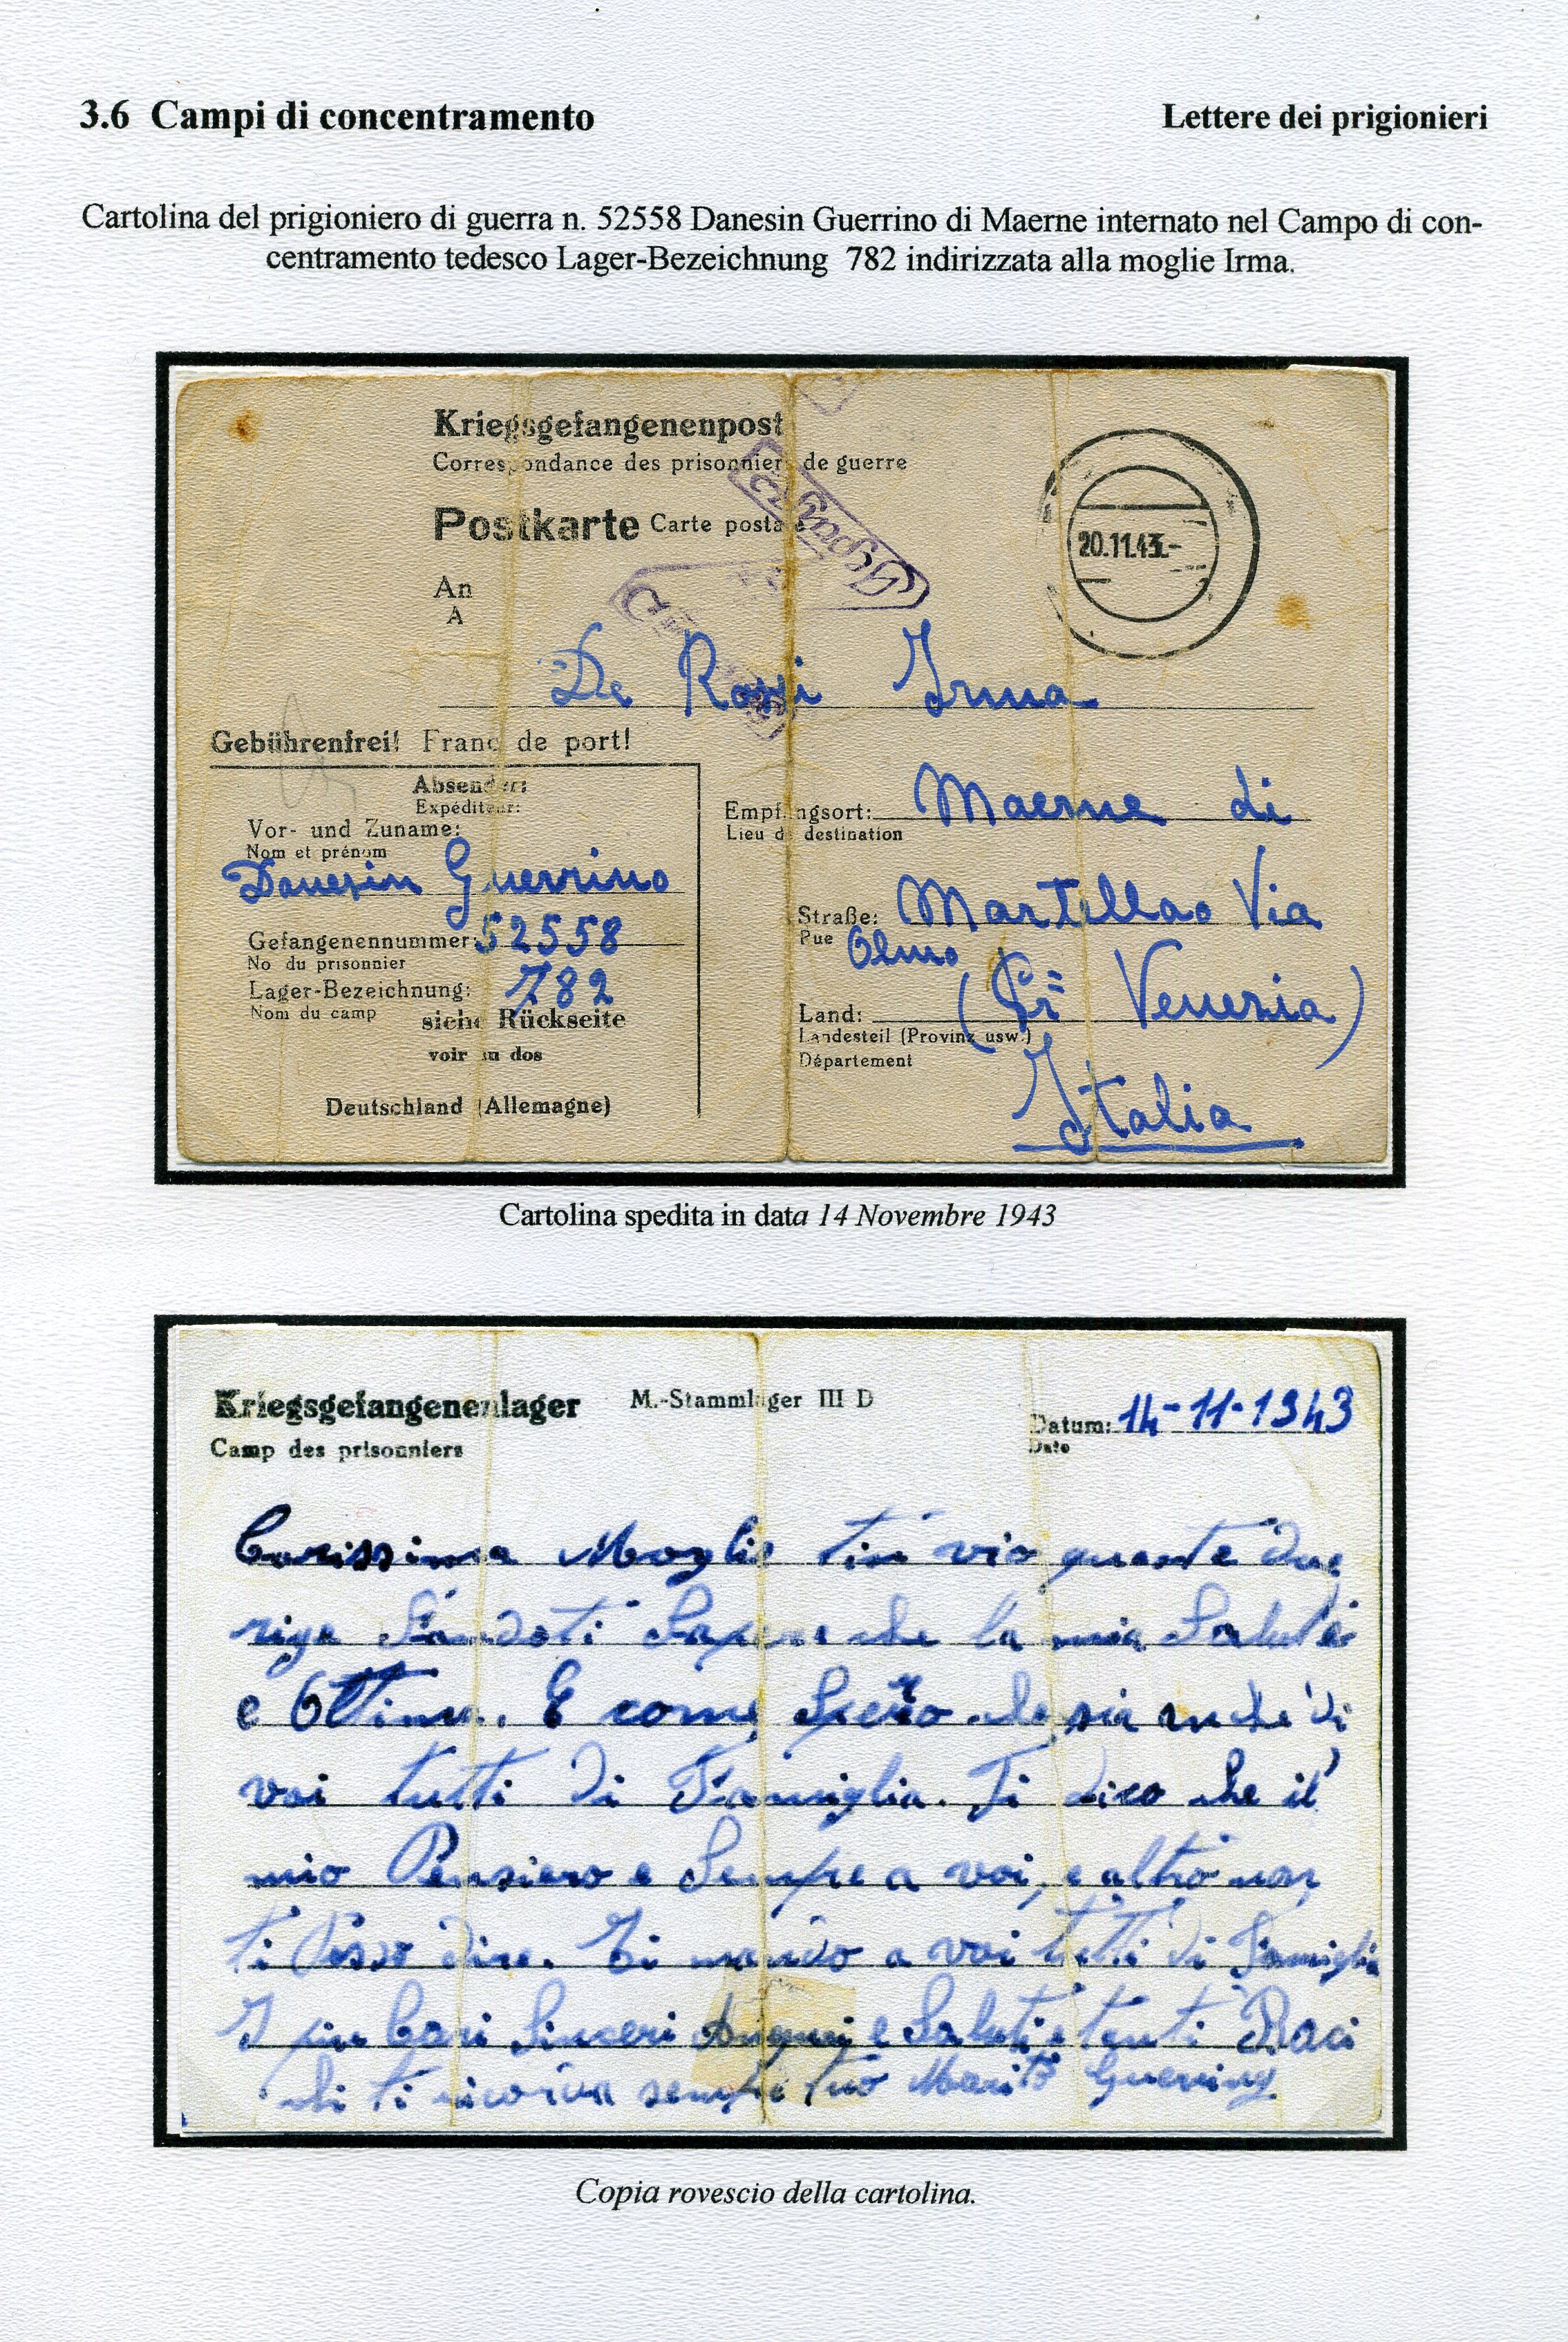 3.6 Campi di concentramento
Lettere dei prigionieri
Cartolina del prigioniero di guerra n. 52558 Danesin Guerrino di Maerne internato nel Campo di con-
centramento tedesco Lager-Bezeichnung 782 indirizzata alla moglie Irma.
Kriegsgefangenenpost
Correspondance des prisonniers de guerre
Postkarte Carte postale
An
A
20.11.43.-
Geprüft
De Rossi Irma
Gebührenfrei! Franc de port!
Absender:
Expéditeur:
Vor- und Zuname:
Nom et prénom
Danesin Guerrino
Gefangenennummer: 52558
No du prisonnier
Lager-Bezeichnung: 782
Nom du camp
siehe Rückseite
voir au dos
Deutschland (Allemagne)
Empfangsort: Maerne di
Lieu de destination
Straße: Martellao Via
Rue Olmo
Land: (Pr Venezia)
Landesteil (Provinz usw.)
Département
Italia
Cartolina spedita in data 14 Novembre 1943
Kriegsgefangenenlager M.-Stammlager III D
Camp des prisonniers
Datum: 14-11-1943
Date
Carissima Moglie tin vio queste due
rige fandoti Sapere che la mia Salute
e Ottima. E come Spero che sia anche di
voi tutti di Famiglia. Ti dico che il
mio Pensiero e Sempre a voi, e altro non
ti Posso dire. Ti mando a voi tutti di Famiglia
I piu Cari Sinceri Auguri e Saluti e tanti Baci
chi ti ricorda sempre tuo Marito Guerrino
Copia rovescio della cartolina.